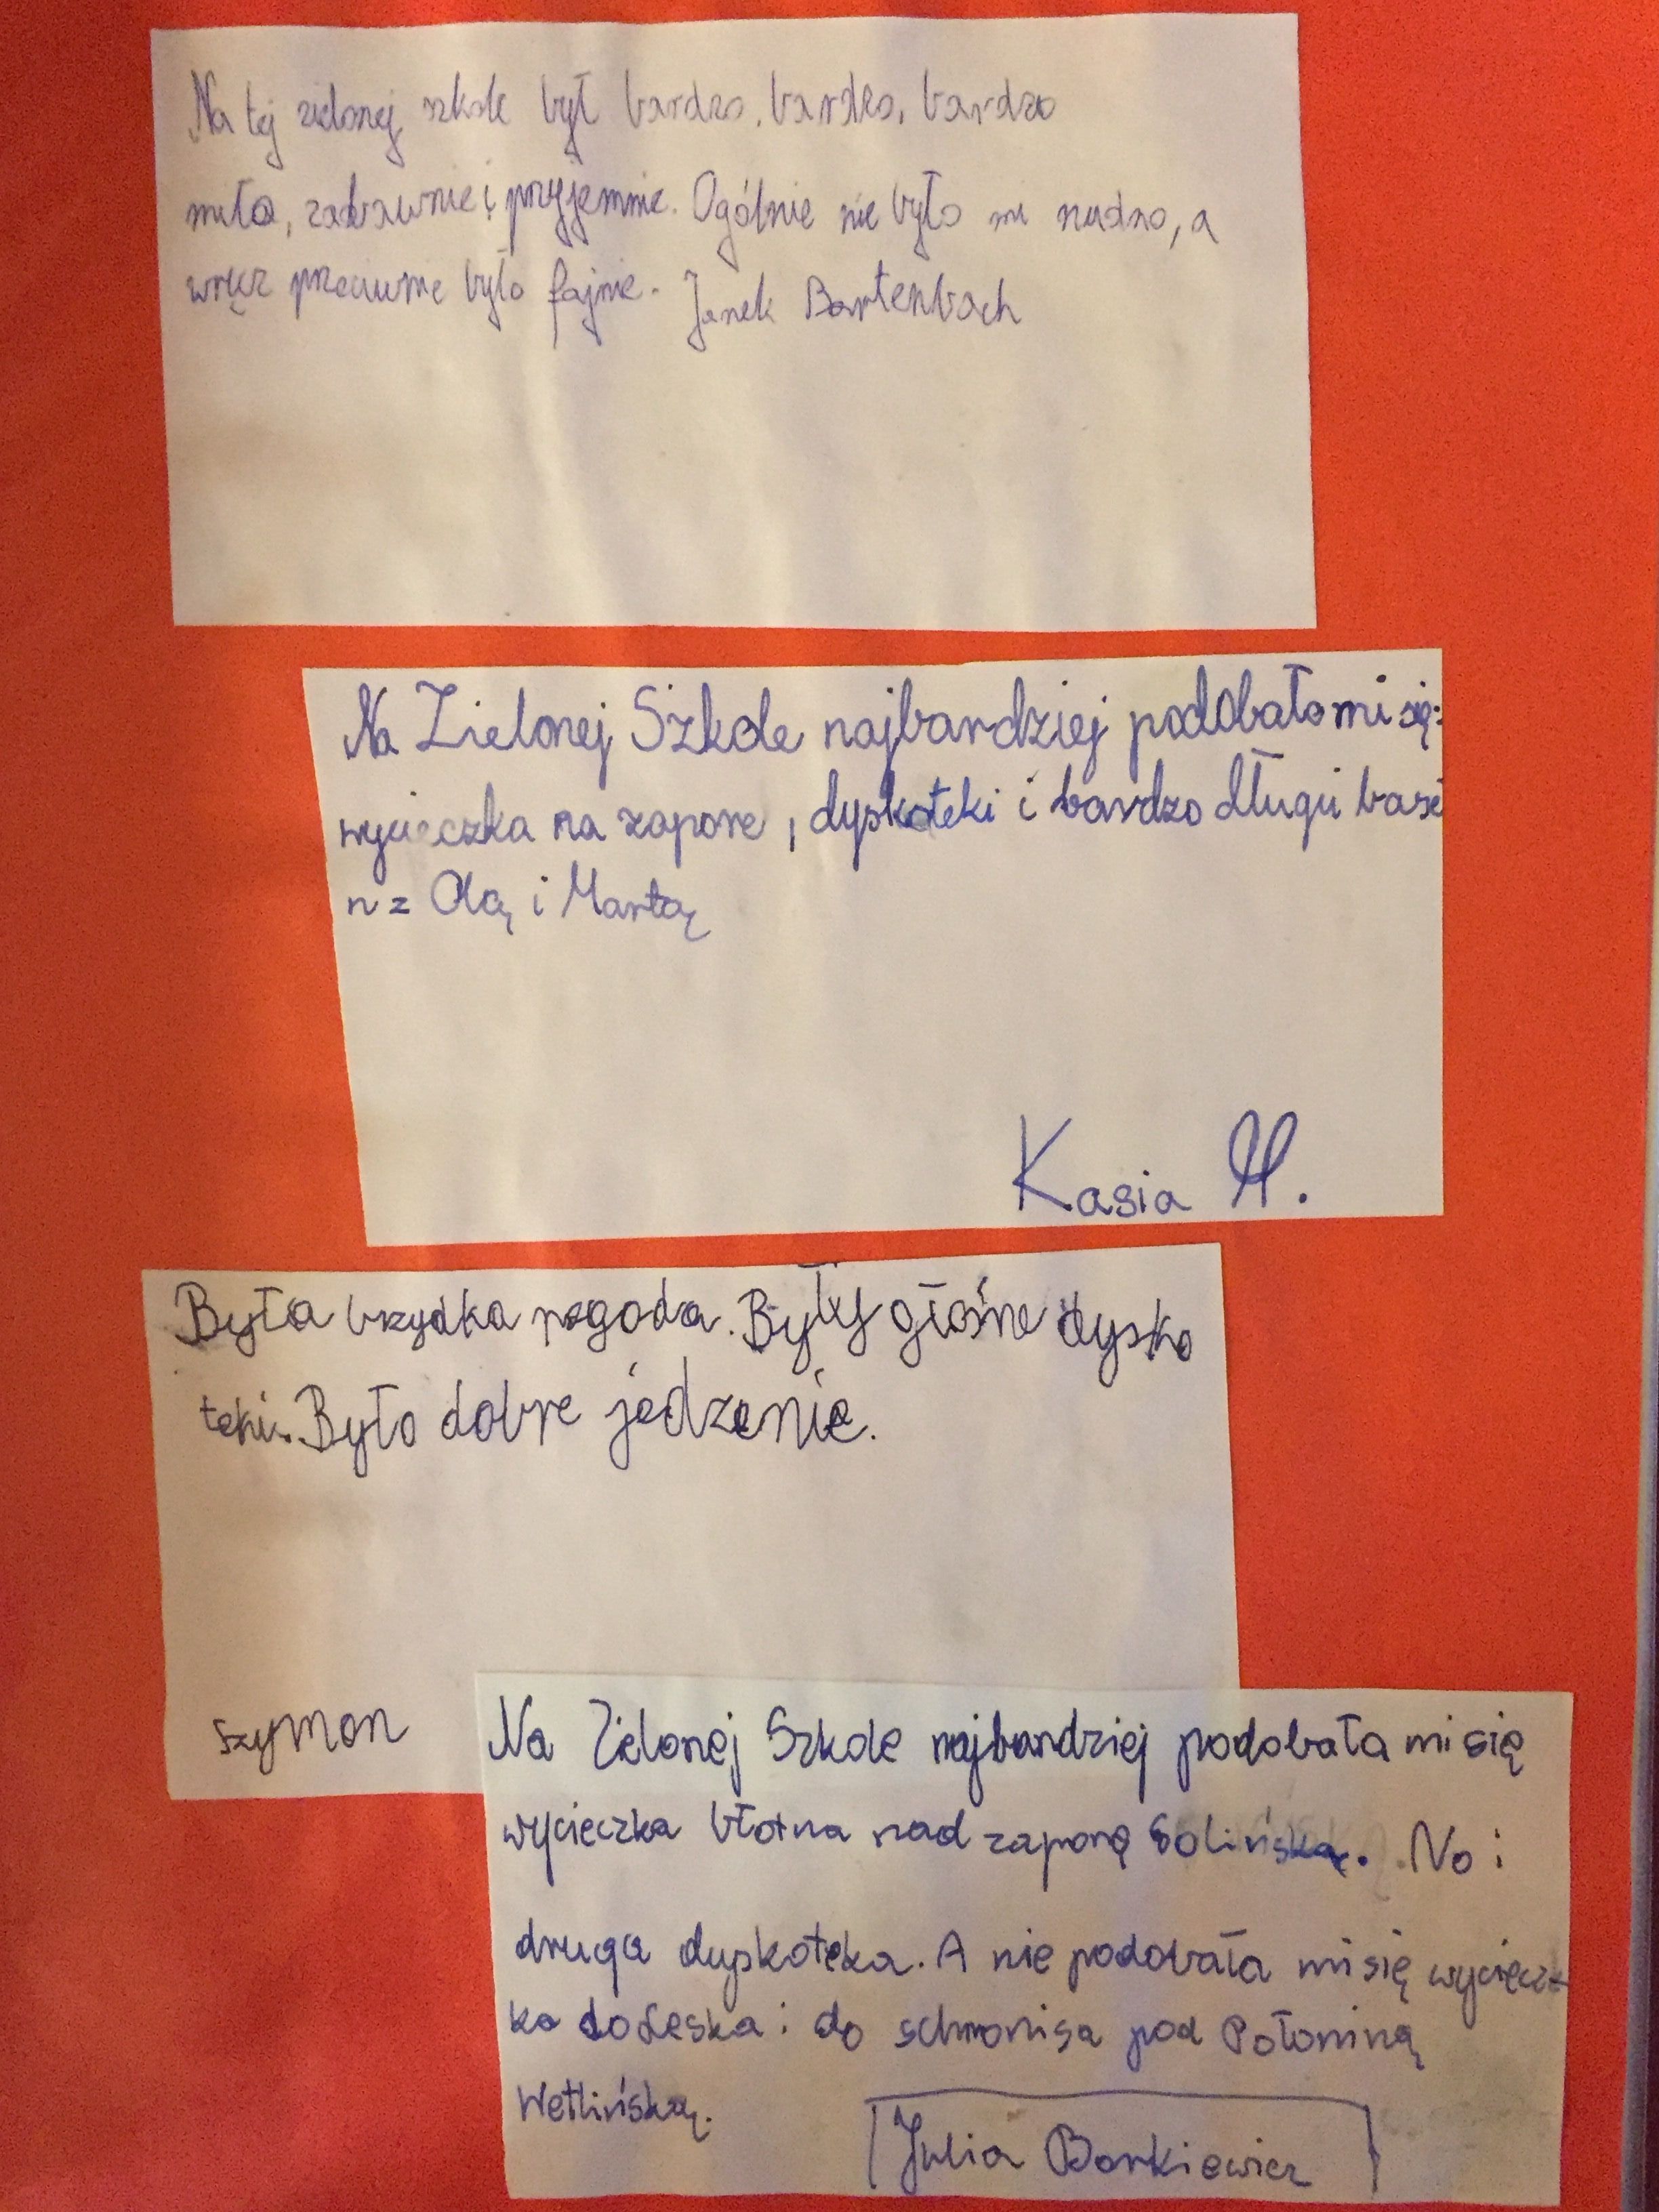 Na tej zielonej szkole był bardzo, bardzo, bardzo
miło, zabawnie i przyjemnie. Ogólnie nie było mi nudno, a
wręcz przeciwnie było fajnie. Janek Bartenbach
Na Zielonej Szkole najbardziej podobało mi się:
wycieczka na zapore, dyskoteki i bardzo długi base
n z Olą i Martą
Kasia M.
Była brzydka pogoda. Były głośne dysko
teki. Było dobre jedzenie.
Szymon
Na Zielonej Szkole najbardziej podobała mi się
wycieczka błotna nad zaporę Solińską. No i
druga dyskoteka. A nie podobała mi się wyciecz-
ka do Leska i do schronisa pod Połoniną
Wetlińską.
Julia Borkiewicz